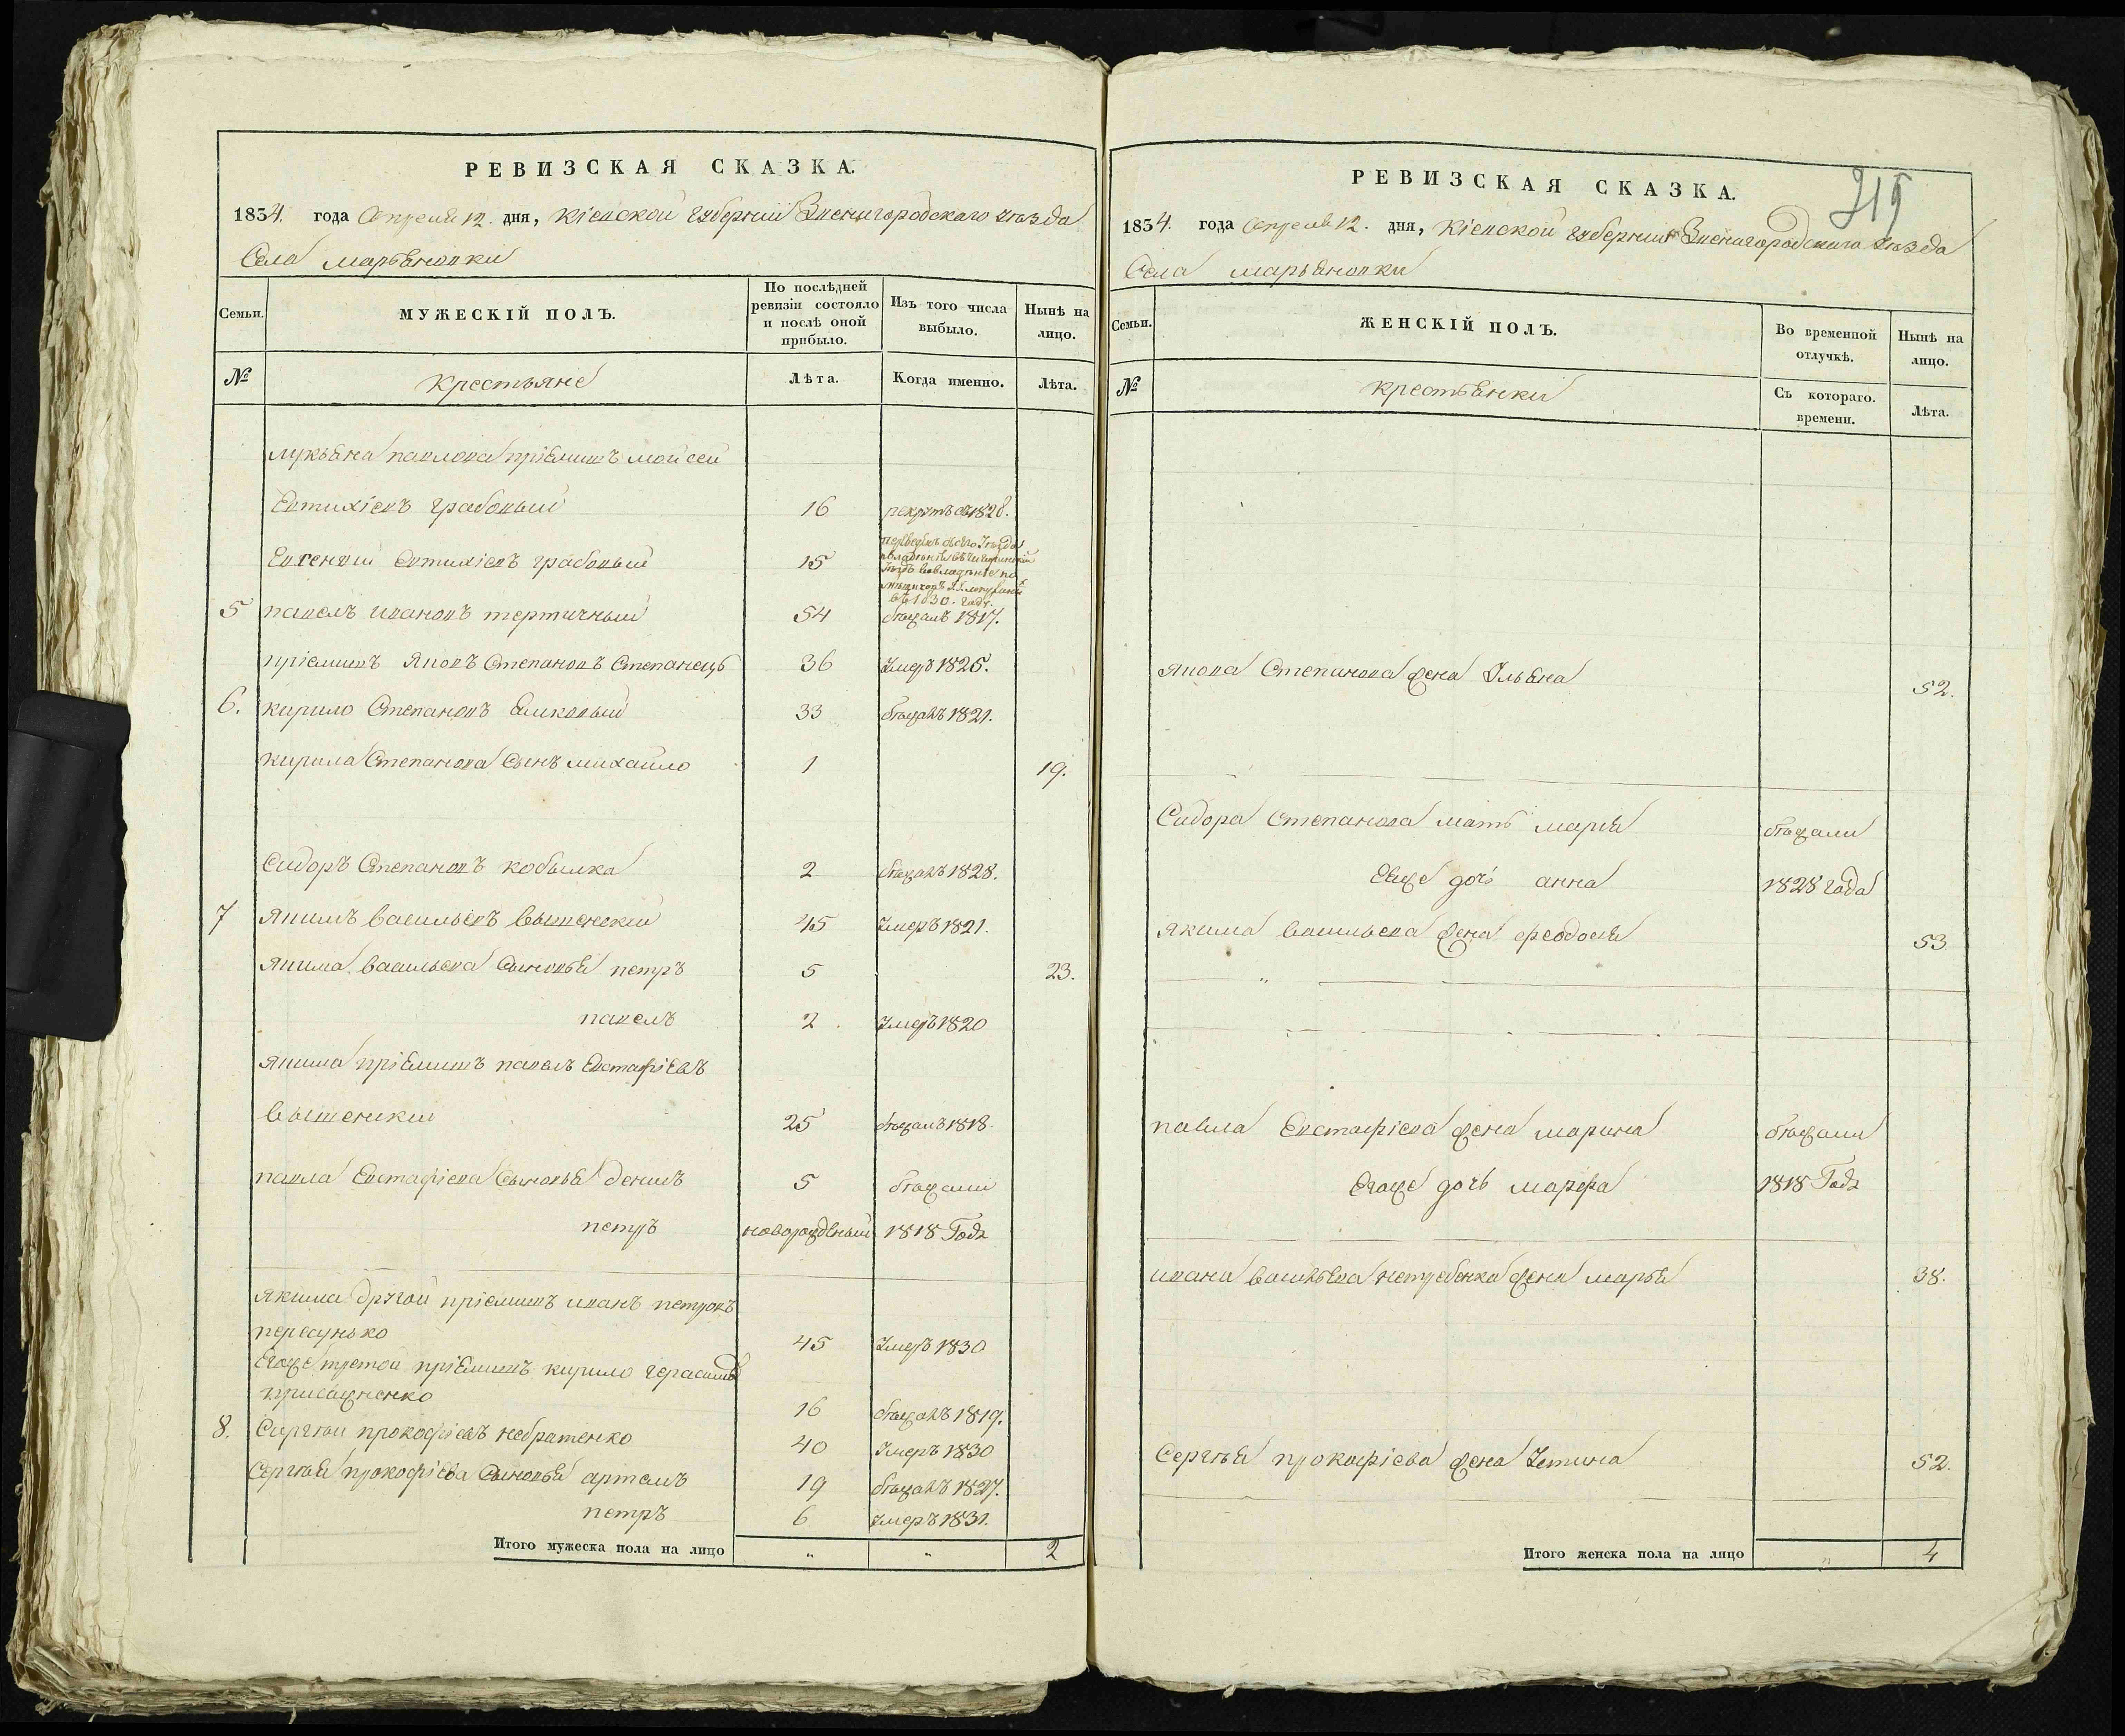 РЕВИЗСКАЯ СКАЗКА.
1834. года Апреля 12. дня, Кіевской губерніи Звенигородскаго уѣзда
Села Марьяновки
Семьи.
МУЖЕСКІЙ ПОЛЪ.
По послѣдней ревизіи состояло и послѣ оной прибыло.
Изъ того числа выбыло.
Нынѣ на лицо.
№
Крестьяне
Лѣта.
Когда именно.
Лѣта.
Лукьяна Павлова пріемышъ Мойсей
Евтихіевъ Грабовый 16 рекрутъ въ 1828.
Евгеній Евтихіевъ Грабовый 15
въ 1830. годѣ.
5 Павелъ Ивановъ Тертичный 54 бѣжалъ 1817.
пріемышъ Яковъ Степановъ Степанецъ 36 умеръ 1825.
6. Кирило Степановъ 33 бѣжалъ 1821.
Кирила Степанова сынъ Михайло 1 19.
Сидоръ Степановъ Кобылка 2 бѣжалъ 1828.
7 Якимъ Васильевъ Вышенскій 45 умеръ 1821.
Якима Васильева сыновья Петръ 5 23.
Павелъ 2. умеръ 1820
Якима пріемышъ Павелъ Евстафіевъ
Вышенскій 25 бѣжалъ 1818.
Павла Евстафіева сыновья Денисъ 5 бѣжали
Петръ новорожденный 1818 года
Якима другой пріемышъ Иванъ Петровъ
Пересунько 45 умеръ 1830
Егоже третой пріемышъ Кирило Герасимовъ
16 бѣжалъ 1819.
8. Сергѣй Прокофіевъ Небратенко 40 умеръ 1830
Сергѣя Прокофіева сыновья Артемъ 19 бѣжалъ 1827.
Петръ 6 умеръ 1831.
Итого мужеска пола на лицо „ „ 2
319
РЕВИЗСКАЯ СКАЗКА.
1834. года Апреля 12. дня, Кіевской губерніи Звенигородскаго уѣзда
Села Марьяновки
Семьи.
ЖЕНСКІЙ ПОЛЪ.
Во временной отлучкѣ.
Нынѣ на лицо.
№
Крестьянки
Съ котораго. времени.
Лѣта.
Якова Степанова жена Ульяна 52.
Сидора Степанова мать Марія бѣжали
Егоже дочь Анна 1828 года
Якима Васильева жена Феодосія 53
Павла Евстафіева жена Марина бѣжали
Егоже дочь Марфа 1818 года
Ивана Васильева жена Марья 38.
Сергѣя Прокофіева жена Устина 52.
Итого женска пола на лицо „ 4